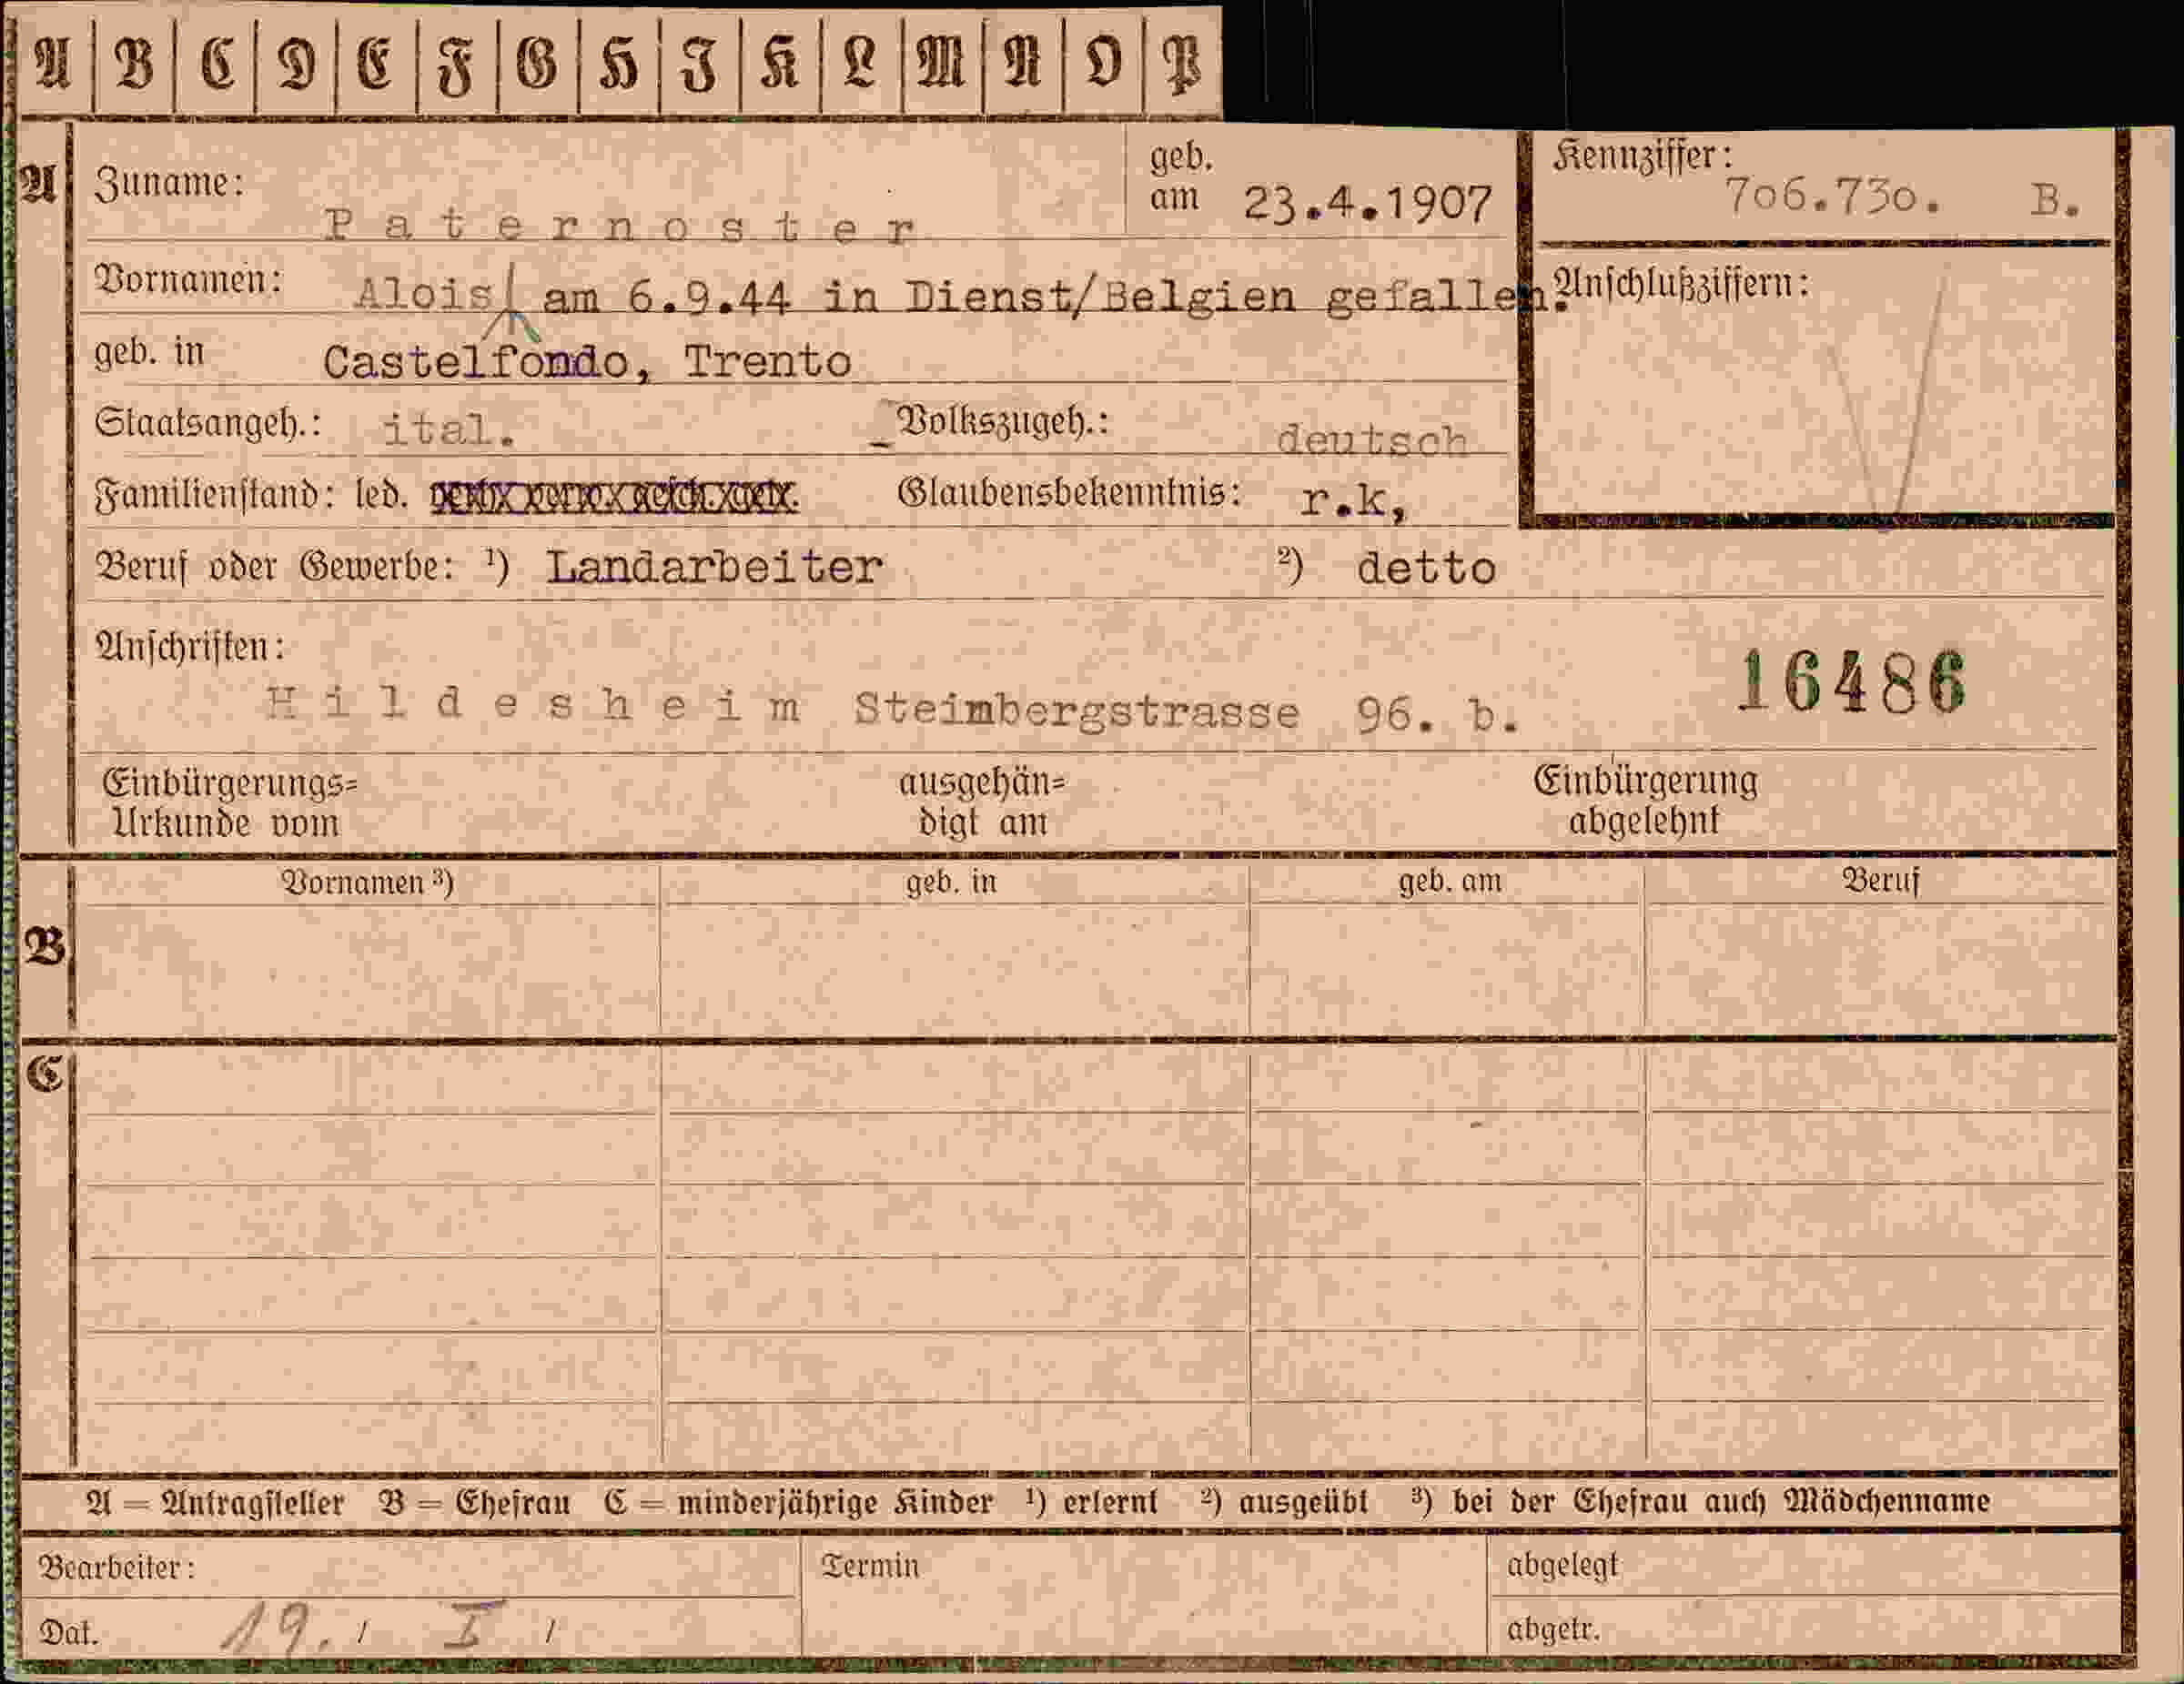 A B C D E F G H I K L M N O P
A Zuname: Paternoster geb. am 23.4.1907 Kennziffer: 706.730. B.
Vornamen: Alois am 6.9.44 in Dienst/Belgien gefallen. Anschlußziffern:
geb. in Castelfondo, Trento
Staatsangeh.: ital. Volkszugeh.: deutsch
Familienstand: led. Glaubensbekenntnis: r.k,
Beruf oder Gewerbe: ¹) Landarbeiter ²) detto
Anschriften:
16486
Hildesheim Steimbergstrasse 96. b.
Einbürgerungs= ausgehän= Einbürgerung
Urkunde vom digt am abgelehnt
B Vornamen ³) geb. in geb. am Beruf
C
A = Antragsteller B = Ehefrau C = minderjährige Kinder ¹) erlernt ²) ausgeübt ³) bei der Ehefrau auch Mädchenname
Bearbeiter: Termin abgelegt
Dat. 19. / I / abgetr.